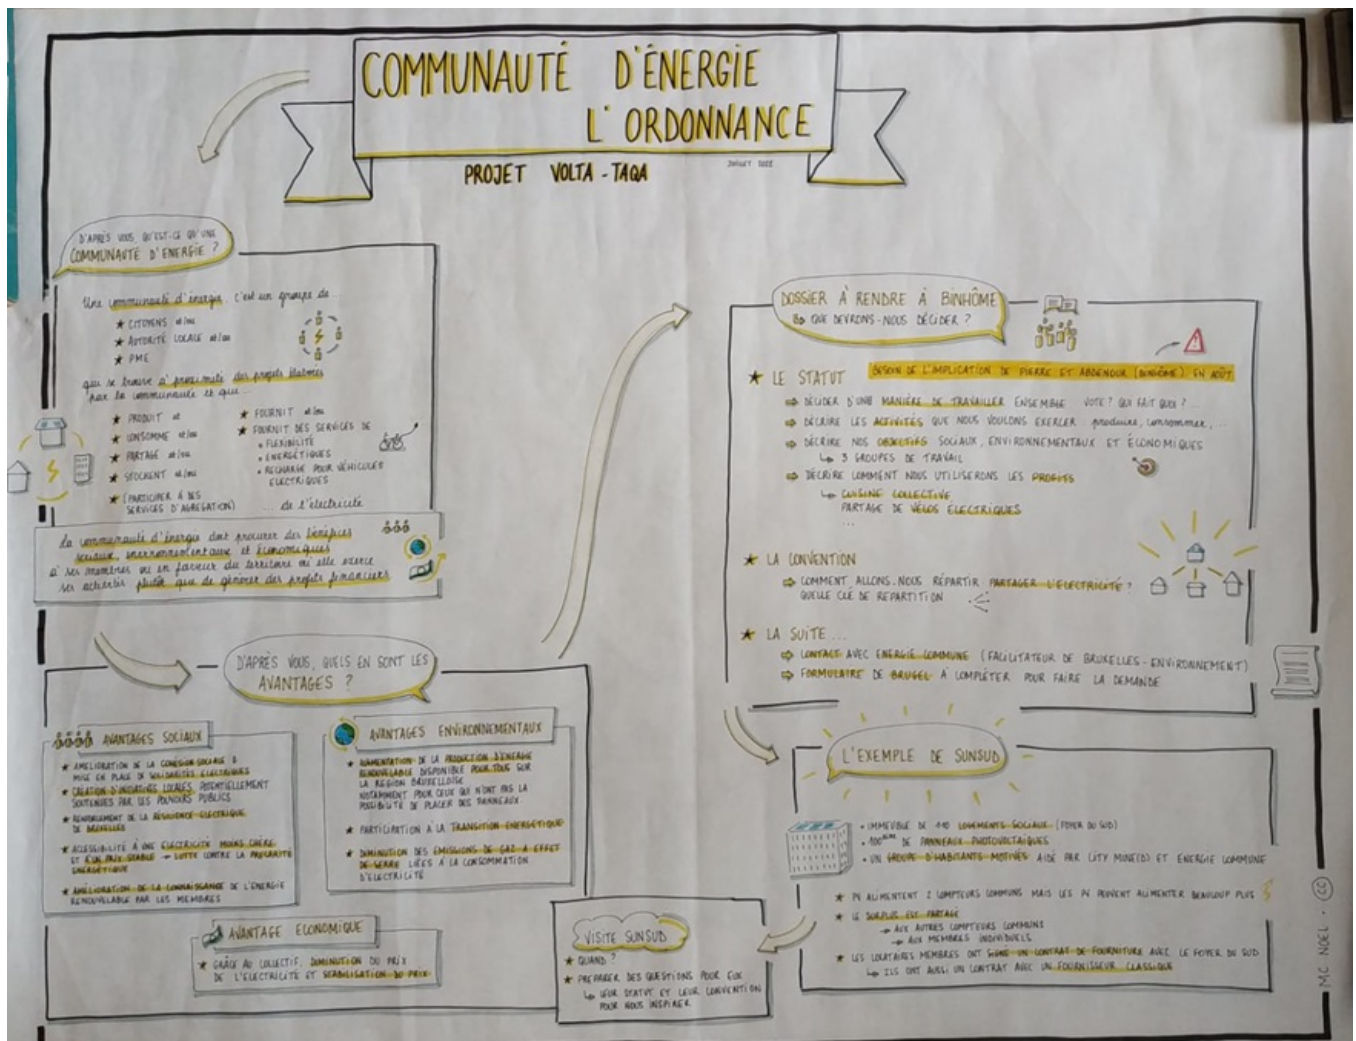 COMMUNAUTÉ D'ÉNERGIE
L'ORDONNANCE
PROJET VOLTA-TAQA
JUILLET 2022
D'APRÈS VOUS, QU'EST-CE QU'UNE
COMMUNAUTÉ D'ENERGIE ?
Une communauté d'énergie, c'est un groupe de...
★ CITOYENS et/ou
★ AUTORITÉ LOCALE et/ou
★ PME
qui se trouve à proximité des projets élaborés
par la communauté et qui...
★ PRODUIT et
★ CONSOMME et/ou
★ PARTAGE et/ou
★ STOCKENT et/ou
★ (PARTICIPER À DES
SERVICES D'AGREGATION)
★ FOURNIT et/ou
★ FOURNIT DES SERVICES DE
• FLEXIBILITÉ
• ENERGÉTIQUES
• RECHARGE POUR VÉHICULES
ELECTRIQUES
... de l'électricité
La communauté d'énergie doit procurer des bénéfices
sociaux, environnementaux et économiques
à ses membres ou en faveur du territoire où elle exerce
ses activités plutôt que de générer des profits financiers
D'APRÈS VOUS, QUELS EN SONT LES
AVANTAGES ?
AVANTAGES SOCIAUX
★ AMÉLIORATION DE LA COHÉSION SOCIALE &
MISE EN PLACE DE SOLIDARITÉS ELECTRIQUES
★ CRÉATION D'INITIATIVES LOCALES, POTENTIELLEMENT
SOUTENUES PAR LES POUVOIRS PUBLICS
★ RENFORCEMENT DE LA RÉSILIENCE ELECTRIQUE
DE BRUXELLES
★ ACCESSIBILITÉ À UNE ELECTRICITÉ MOINS CHÈRE
ET À UN PRIX STABLE → LUTTE CONTRE LA PRÉCARITÉ
ENERGÉTIQUE
★ AMÉLIORATION DE LA CONNAISSANCE DE L'ÉNERGIE
RENOUVELABLE PAR LES MEMBRES
AVANTAGES ENVIRONNEMENTAUX
★ AUGMENTATION DE LA PRODUCTION D'ÉNERGIE
RENOUVELABLE DISPONIBLE POUR TOUS SUR
LA REGION BRUXELLOISE
NOTAMMENT POUR CEUX QUI N'ONT PAS LA
POSSIBILITÉ DE PLACER DES PANNEAUX
★ PARTICIPATION À LA TRANSITION ENERGETIQUE
★ DIMINUTION DES EMISSIONS DE GAZ À EFFET
DE SERRE LIÉES À LA CONSOMMATION
D'ELECTRICITÉ
AVANTAGE ECONOMIQUE
★ GRÂCE AU COLLECTIF, DIMINUTION DU PRIX
DE L'ÉLECTRICITÉ ET STABILISATION DU PRIX
DOSSIER À RENDRE À BINHÔME
↳ QUE DEVRONS-NOUS DÉCIDER ?
★ LE STATUT
BESOIN DE L'IMPLICATION DE PIERRE ET ABDENOUR (BINHÔME) EN AOÛT
⇨ DÉCIDER D'UNE MANIÈRE DE TRAVAILLER ENSEMBLE VOTE ? QUI FAIT QUOI ? ...
⇨ DÉCRIRE LES ACTIVITÉS QUE NOUS VOULONS EXERCER : produire, consommer, ...
⇨ DÉCRIRE NOS OBJECTIFS SOCIAUX, ENVIRONNEMENTAUX ET ÉCONOMIQUES
↳ 3 GROUPES DE TRAVAIL
⇨ DÉCRIRE COMMENT NOUS UTILISERONS LES PROFITS
↳ CUISINE COLLECTIVE
PARTAGE DE VÉLOS ELECTRIQUES
...
★ LA CONVENTION
⇨ COMMENT ALLONS-NOUS RÉPARTIR PARTAGER L'ELECTRICITÉ ?
QUELLE CLÉ DE REPARTITION
★ LA SUITE ...
⇨ CONTACT AVEC ENERGIE COMMUNE (FACILITATEUR DE BRUXELLES-ENVIRONNEMENT)
⇨ FORMULAIRE DE BRUGEL À COMPLÉTER POUR FAIRE LA DEMANDE
L'EXEMPLE DE SUNSUD
• IMMEUBLE DE LOGEMENTS SOCIAUX (FOYER DU SUD)
• DE PANNEAUX PHOTOVOLTAIQUES
• UN GROUPE D'HABITANTS MOTIVÉS AIDÉ PAR CITY MINE(D) ET ENERGIE COMMUNE
★ PV ALIMENTENT 2 COMPTEURS COMMUNS MAIS LES PV PEUVENT ALIMENTER BEAUCOUP PLUS
★ LE SURPLUS EST PARTAGÉ
→ AUX AUTRES COMPTEURS COMMUNS
→ AUX MEMBRES INDIVIDUELS
★ LES LOCATAIRES MEMBRES ONT SIGNÉ UN CONTRAT DE FOURNITURE AVEC LE FOYER DU SUD
↳ ILS ONT AUSSI UN CONTRAT AVEC UN FOURNISSEUR CLASSIQUE
VISITE SUNSUD
★ QUAND ?
★ PREPARER DES QUESTIONS POUR EUX
↳ LEUR STATUT ET LEUR CONVENTION
POUR NOUS INSPIRER
MC NOEL · CC